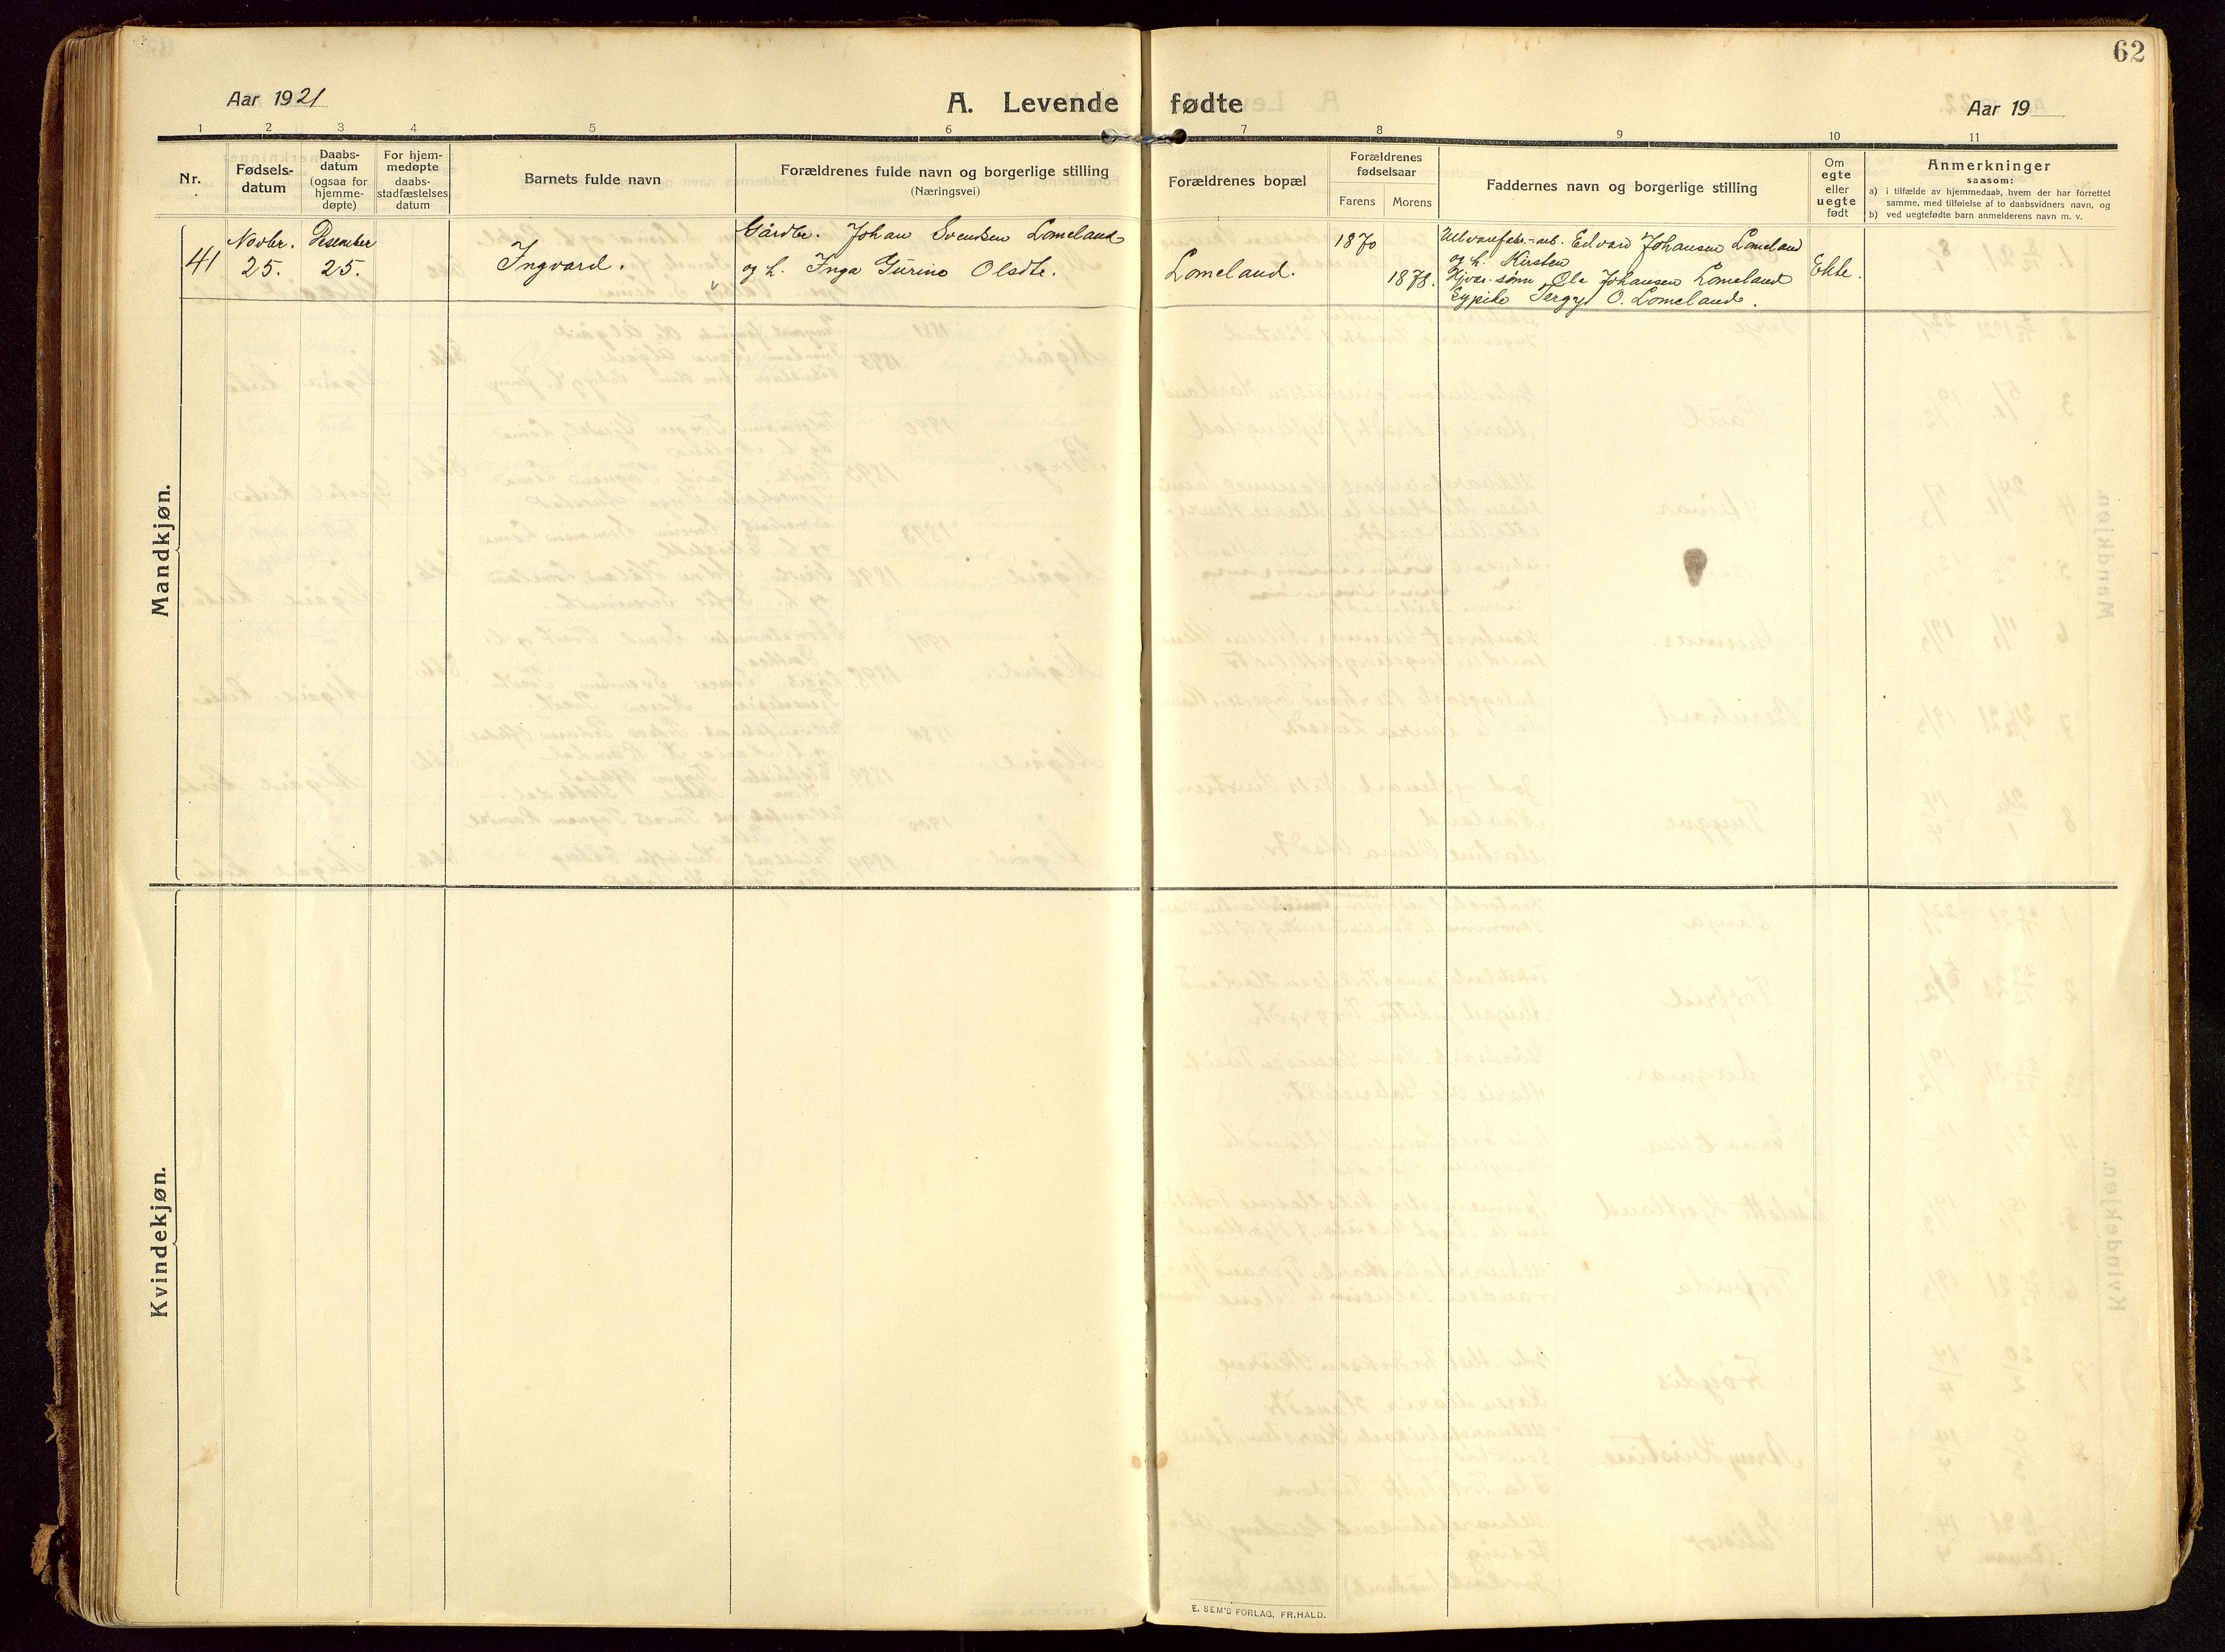 62
Aar 1921
A. Levende fødte
Aar 19
1 2 3 4 5 6 7 8 9 10 11
Nr.
Fødsels-
datum
Daabs-
datum
(ogsaa for
hjemme-
døpte)
For hjem-
medøpte
daabs-
stadfæstelses
datum
Barnets fulde navn
Forældrenes fulde navn og borgerlige stilling
(Næringsvei)
Forældrenes bopæl
Forældrenes
fødselsaar
Farens Morens
Faddernes navn og borgerlige stilling
Om
egte
eller
uegte
født
Anmerkninger
saasom:
a) i tilfælde av hjemmedaab, hvem der har forrettet
samme, med tilføielse av to daabsvidners navn, og
b) ved uegtefødte barn anmelderens navn m. v.
Mandkjøn.
41
Novbr.
25.
Desember
25.
Ingvard.
Gårdbr. Johan Svendsen Lomeland
og h. Inga Gurine Olsdtr.
Lomeland.
1870
1878.
Uldvarefabr.-arb. Edvard Johansen Lomeland
og h. Kirsten
sønn Ole Johansen Lomeland
O. Lomeland.
Ekte.
Kvindekjøn.
E. SEM'S FORLAG, FR.HALD.